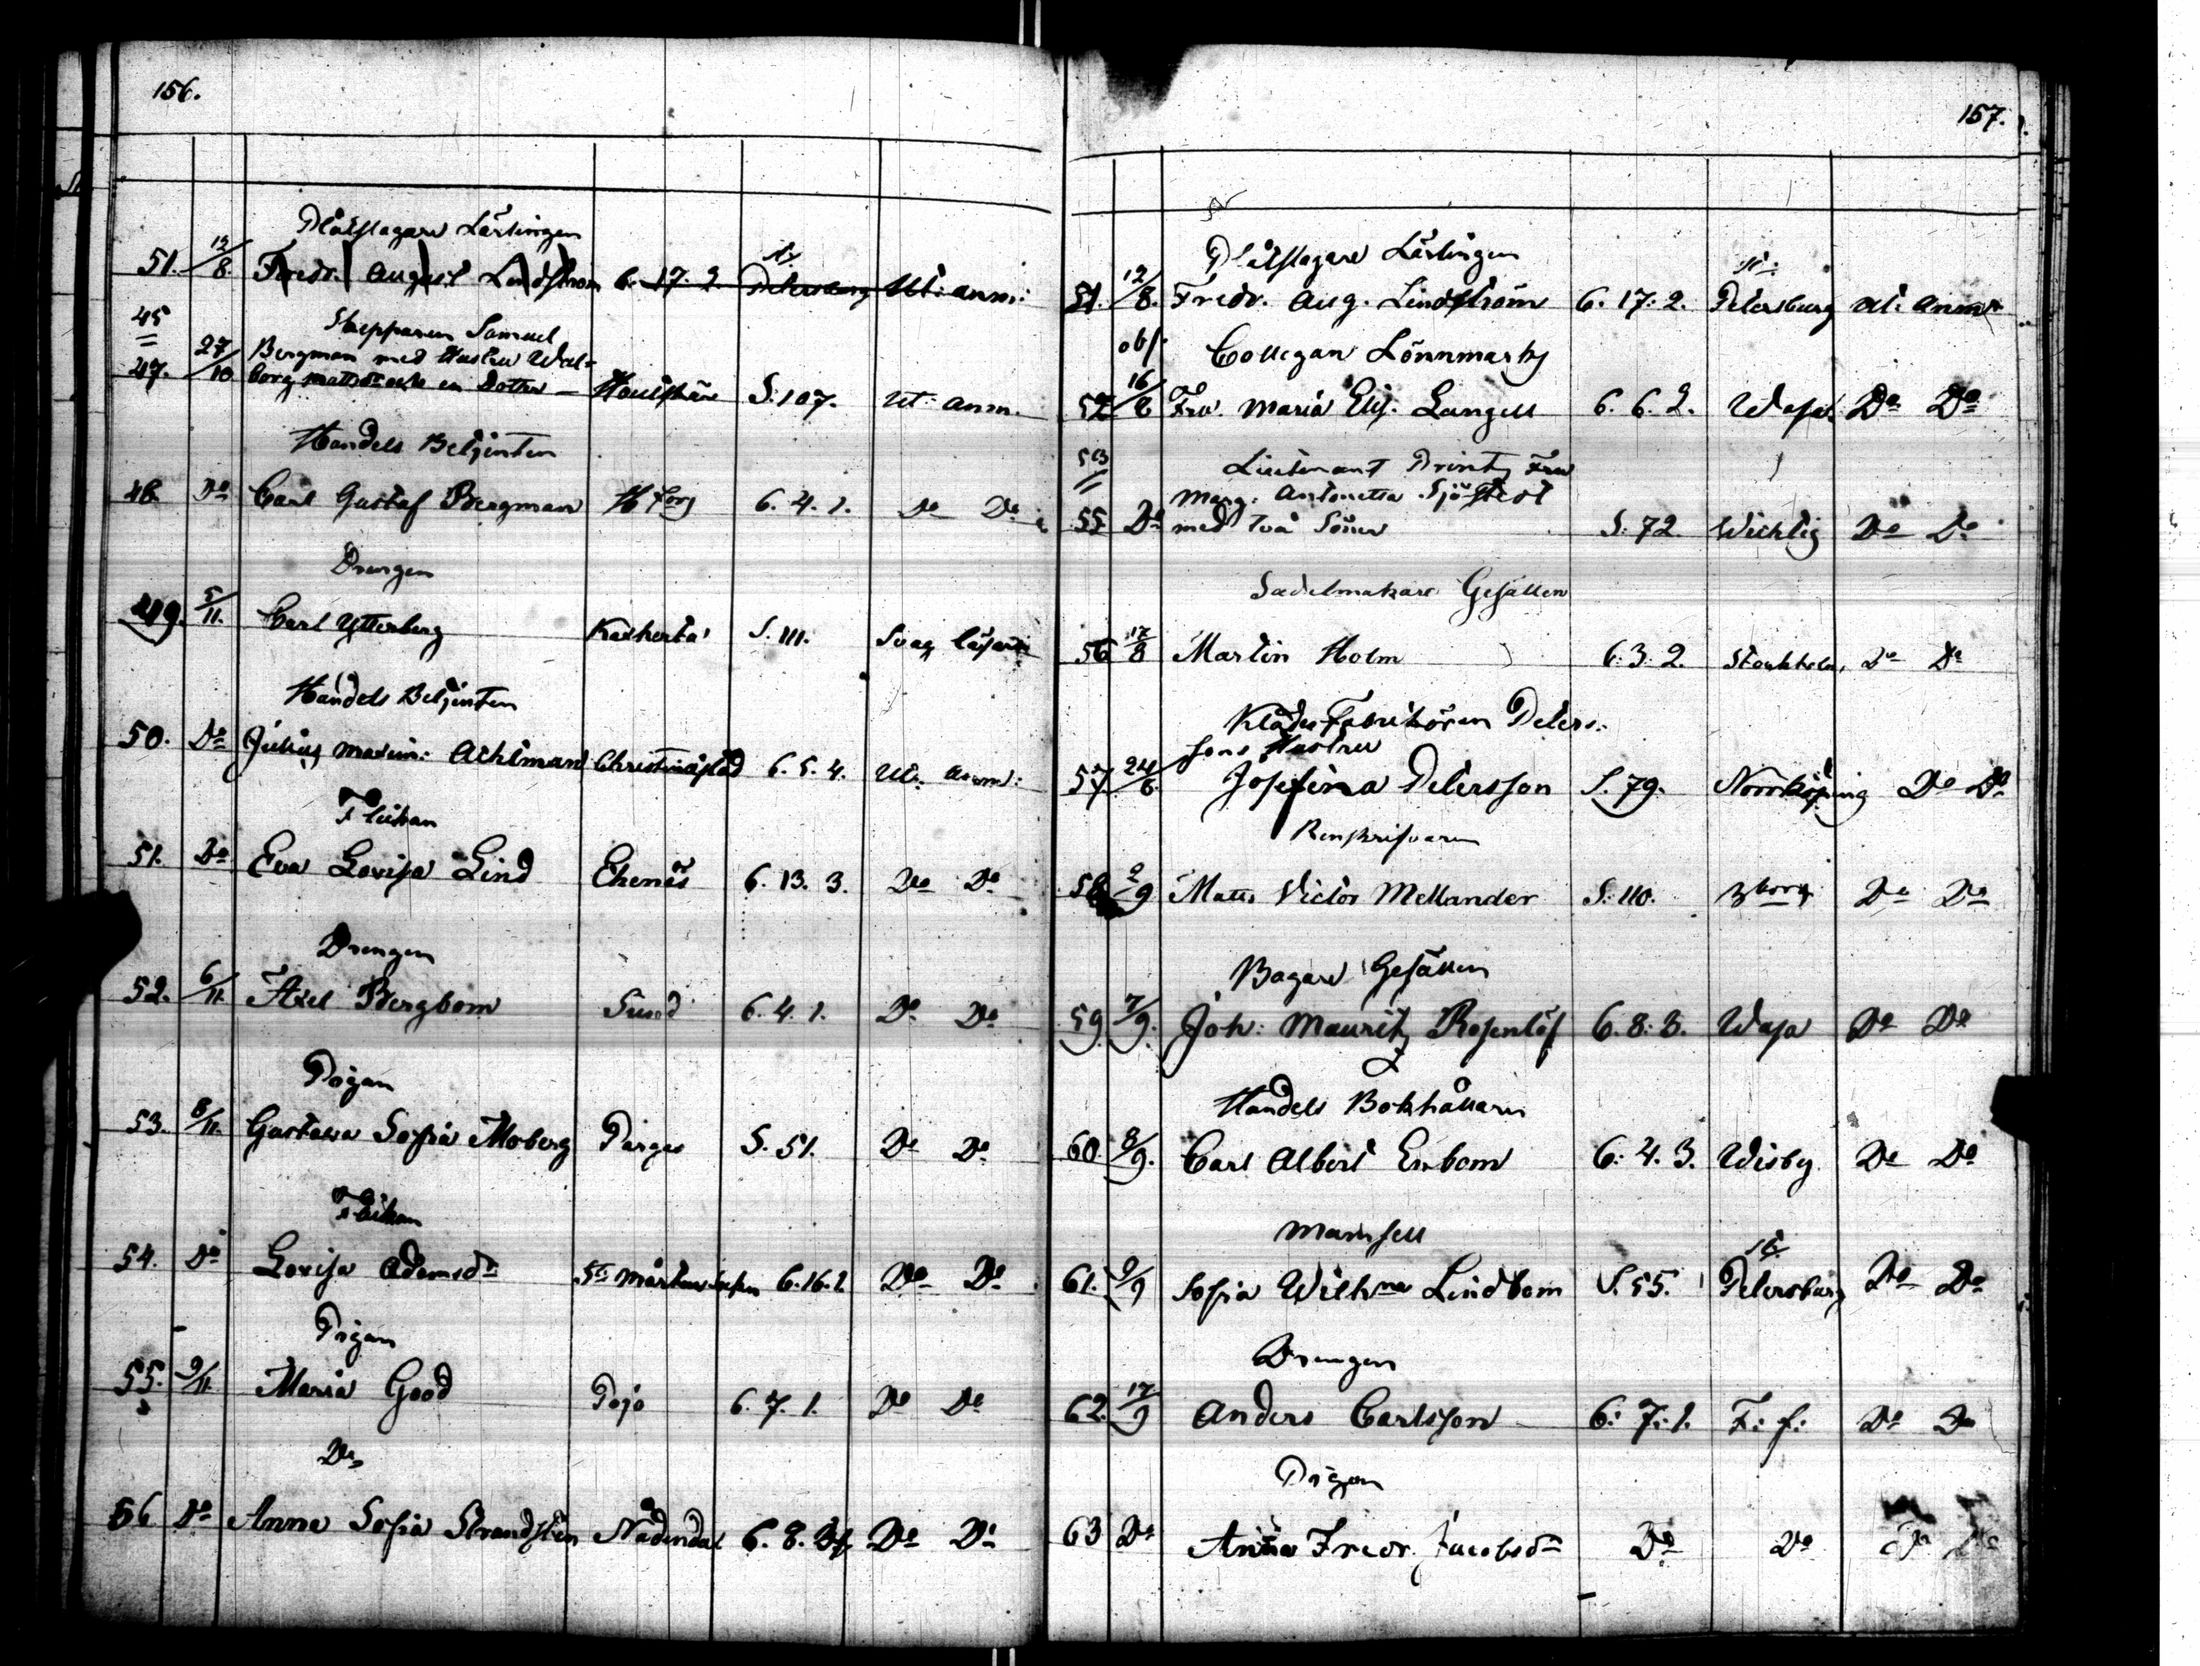 156.
Plåtslagare Lärlingen
51. 12/8. Fredr. August Lindström 6. 17. 2. St. Petersburg Ut: anm:
45 Skepparen Samuel
= 27/10 Bergman med Hustru Wal-
47. borg Mattsdr och en Dotter — Houtskär S: 107. Ut: anm.
Handels Betjenten
48 Do Carl Gustaf Bergman H:fors 6. 4. 1. Do Do
Drengen
49. 5/11. Carl Ytterberg S. 111. Svag läsare
Handels Betjenten
50. Do Julius Maxim: Achlman Christinæstad 6. 5. 4. Ut. anm:
Flickan
51. Do Eva Lovisa Lind Ekenäs 6. 13. 3. Do Do
Drengen
52. 6/11. Axel Bergbom Sund 6. 4. 1. Do Do
Pigan
53. 8/11. Gustava Sofia Moberg Pargas S. 51. Do Do
Flickan
54. Do Lovisa Adamsdr St Mårtens 6. 16. 1 Do Do
Pigan
55. 9/11. Maria Good Pojo 6. 7. 1. Do Do
Do
56 Do Anna Sofia Strandstén Nådendal 6. 8. Do Do
157.
Plåtslagare Lärlingen
51. 12/8. Fredr. Aug. Lindström 6. 17: 2. St. Petersburg Ut. anm:
obs. Collegan Lönnmarks
52 16/8 Fru. Maria Elis. Langell 6. 6. 2. Wasa Do Do
53 Lieutenant Printz Fru
= Marg. Antonetta Sjöstedt
55 Do med två Söner S: 72. Wichtis Do Do
Sadelmakare Gesällen
56 17/8 Martin Holm 6. 3. 2. Stockholm, Do Do
Klädes Fabrikören Peters-
sons Hustru
57. 24/8. Josefina Petersson S. 79. Norrköping Do Do
Renskrifvaren
58 2/9 Matts Victor Mellander S: 110. Do Do
Bagare Gesällen
59 7/9. Joh: Mauritz Rosenlöf 6. 8: 3. Wasa Do Do
Handels Bokhållaren
60. 8/9. Carl Albert Enbom 6: 4. 3. Wisby Do Do
Mamsell
61. 9/9 Sofia Wilhna Lindbom S. 55. St. Petersburg Do Do
Drengen
62. 17/9 Anders Carlsson 6: 7: 1. F: f: Do Do
Pigan
63 Do Anna Fredr. Jacobsdr Do Do Do Do